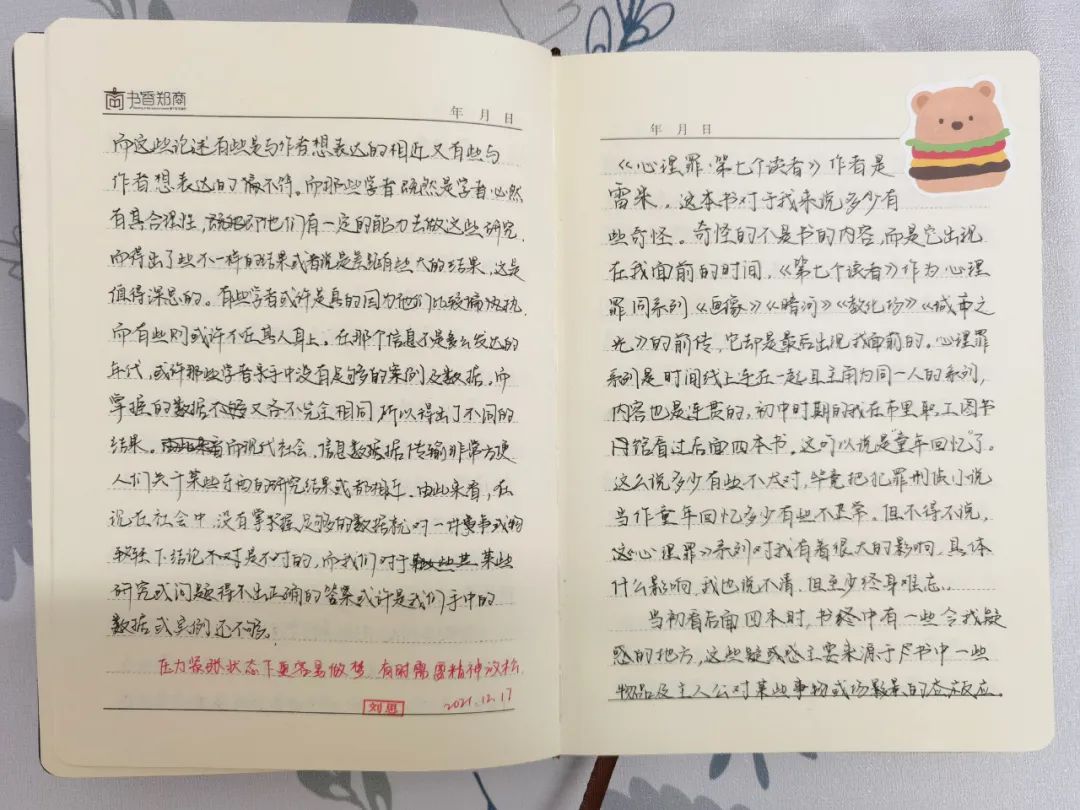 书香郑商
年 月 日
而这些论述有些是与作者想表达的相近又有些与
作者想表达的了偏不符。而那些学者既然是学者必然
有其合理性,既然即他们有一定的能力去做这些研究
而得出了些不一样的结果或者说是差距有些大的结果,这是
值得深思的。有些学者或许是真的因为他们比较偏
而有些则或许不在其人身上。在那个信息不是多么发达的
年代,或许那些学者手中没有足够的案例及数据。而
掌握的数据不够又各不完全相同,所以得出了不同的
结果。而现代社会,信息数据传输非常方便
人们关于某些东西的研究结果或都相近。由此来看,在
现在社会中,没有掌握足够的数据就对一件事或物
下结论不对是不对的,而我们对于某些
研究或问题得不出正确的答案或许是我们手中的
数据或实例还不够。
压力紧张状态下更容易做梦,有时需要精神放松
刘思 2021.12.17
年 月 日
《心理罪·第七个读者》作者是
雷米。这本书对于我来说多少有
些奇怪。奇怪的不是书的内容,而是它出现
在我面前的时间,《第七个读者》作为心理
罪同系列《画像》《暗河》《教化场》《城市之
光》的前传,它却是最后出现我面前的。心理罪
系列是时间线上连在一起且主角为同一人的系列,
内容也是连贯的,初中时期的我在市里职工图书
馆看过后面四本书。这可以说是"童年回忆"了。
这么说多少有些不太对,毕竟把犯罪刑侦小说
当作童年回忆多少有些不正常。但不得不说,
这《心理罪》系列对我有着很大的影响,具体
什么影响,我也说不清,但至少终身难忘..
当初看后面四本时,书中有一些令我疑
惑的地方,这些疑惑主要来源于书中一些
物品及主人公对某些事物或场景的反应。